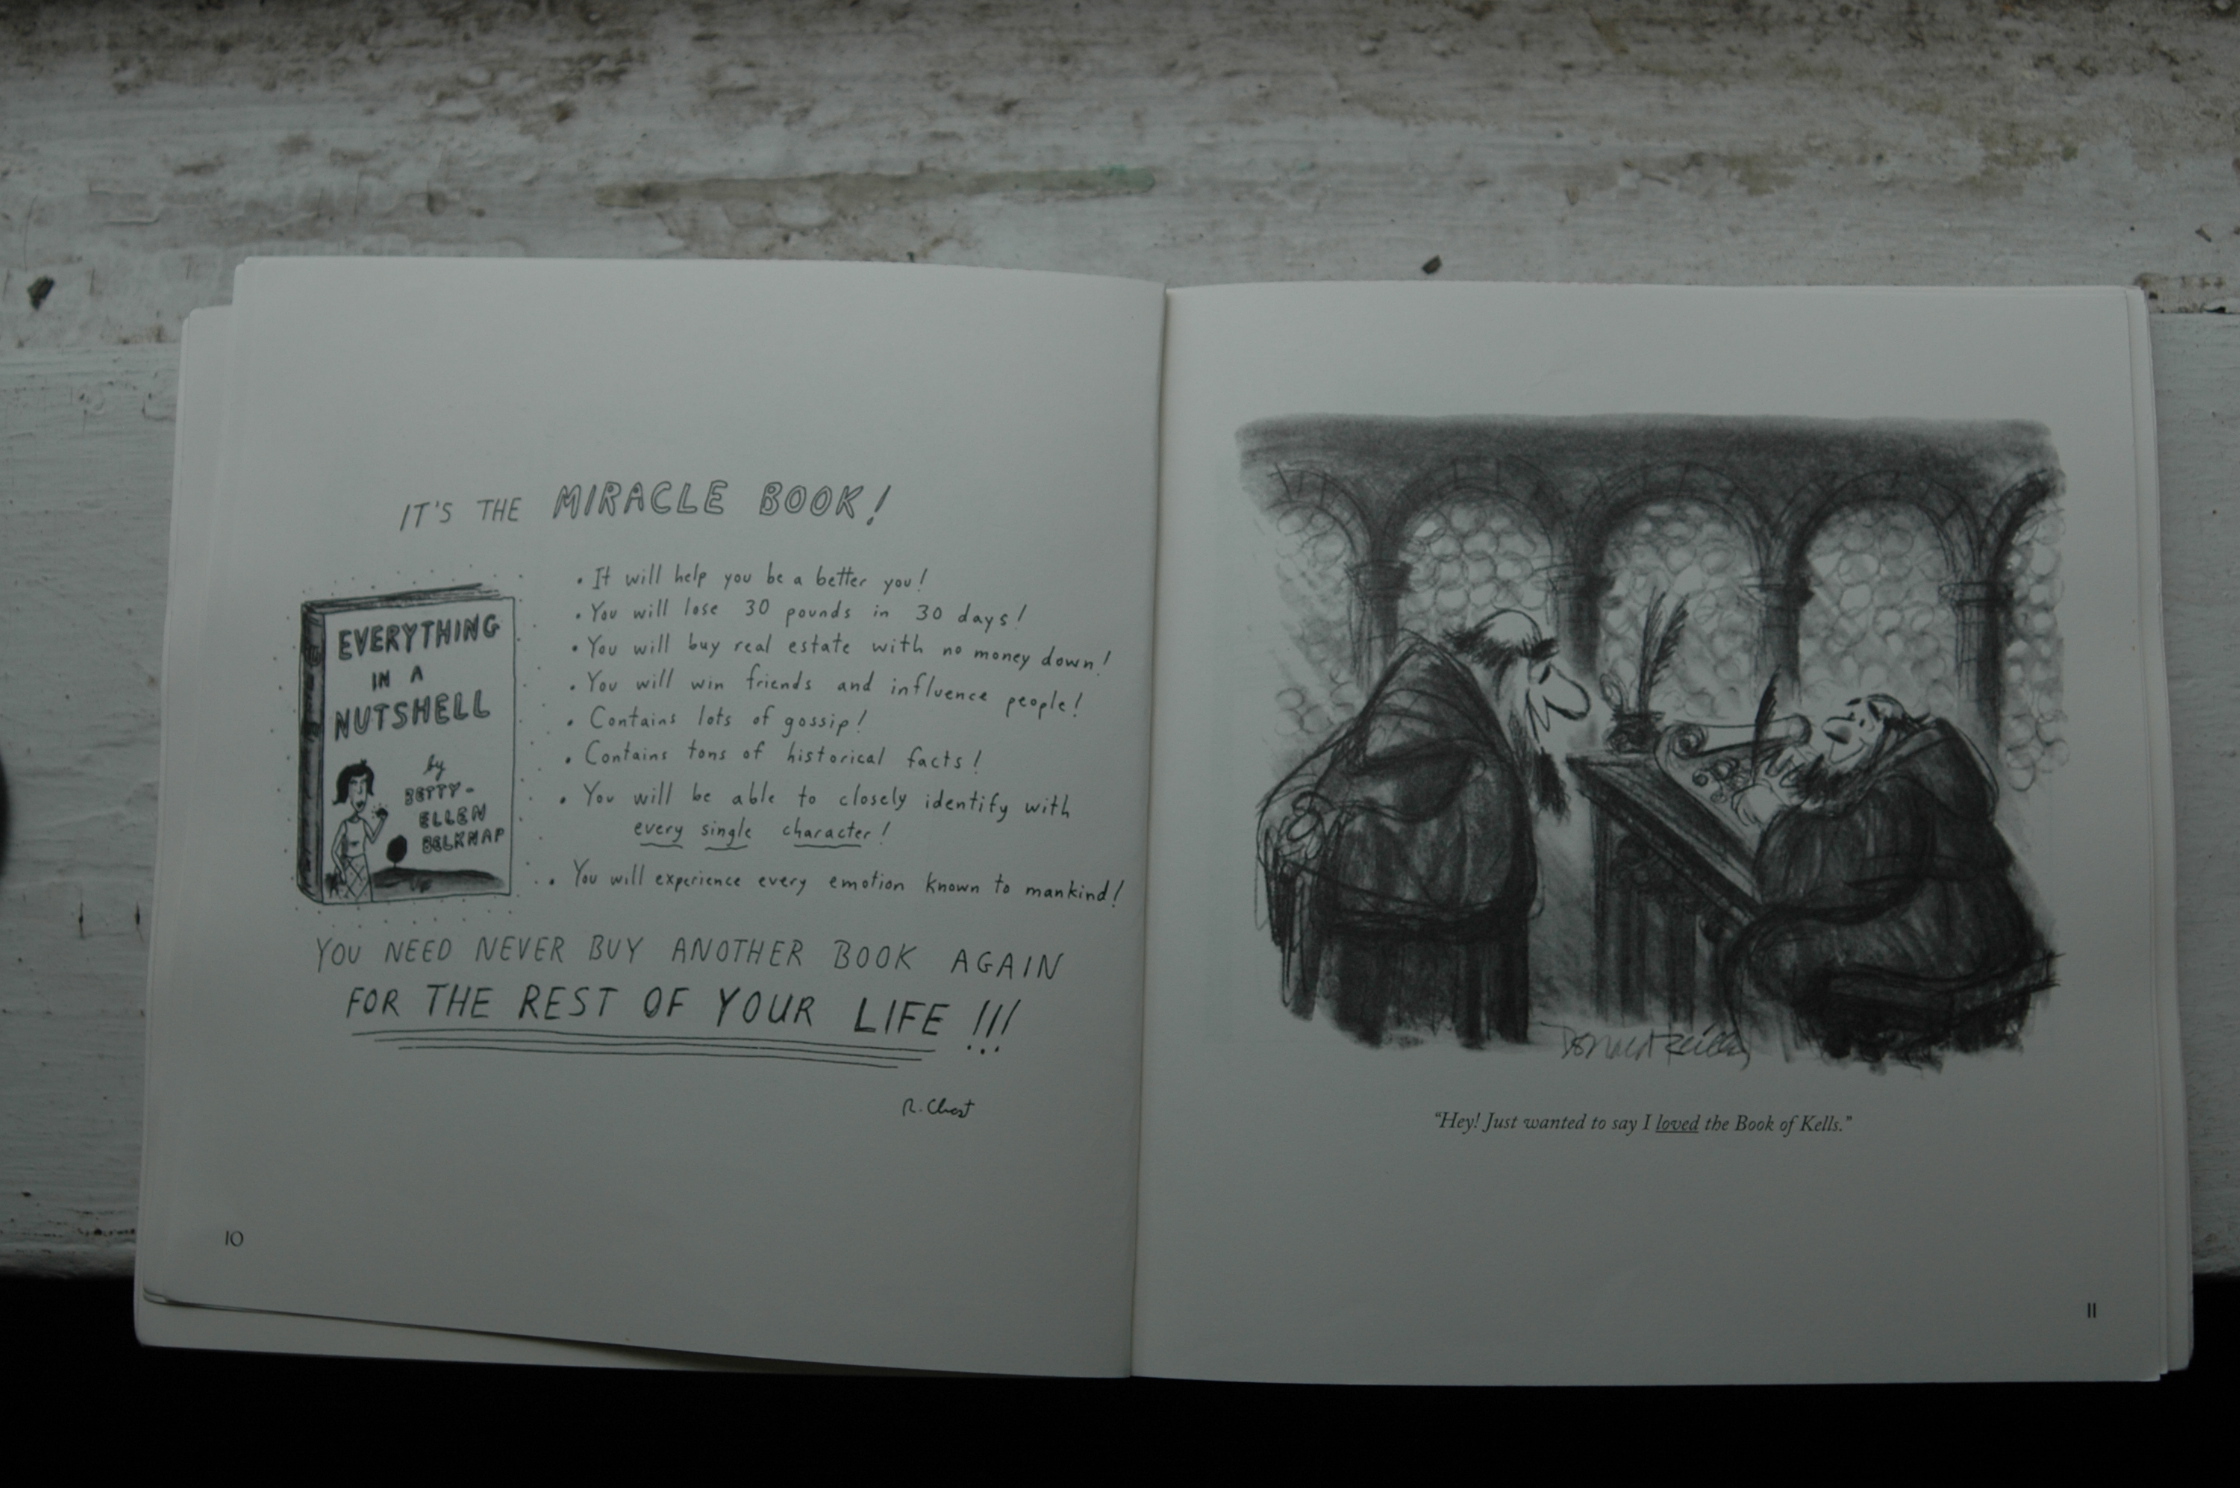 IT'S THE MIRACLE BOOK!
EVERYTHING
IN A
NUTSHELL
by
BETTY-
ELLEN
BELKNAP
• It will help you be a better you!
• You will lose 30 pounds in 30 days!
• You will buy real estate with no money down!
• You will win friends and influence people!
• Contains lots of gossip!
• Contains tons of historical facts!
• You will be able to closely identify with
every single character!
• You will experience every emotion known to mankind!
YOU NEED NEVER BUY ANOTHER BOOK AGAIN
FOR THE REST OF YOUR LIFE!!!
R. Chast
10
Donald Reilly
"Hey! Just wanted to say I loved the Book of Kells."
11